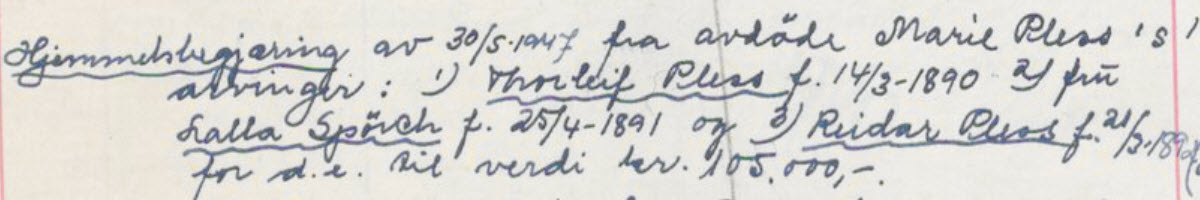 Hjemmelsbegjæring av 30/5-1947 fra avdöde Marie Pless 's
arvinger: 1) Thorleif Pless f. 14/3-1890 2) fru
Lalla Spörck f. 25/4-1891 og 3) Reidar Pless f. 21/3-189
for d.e. til verdi kr. 105.000,-.